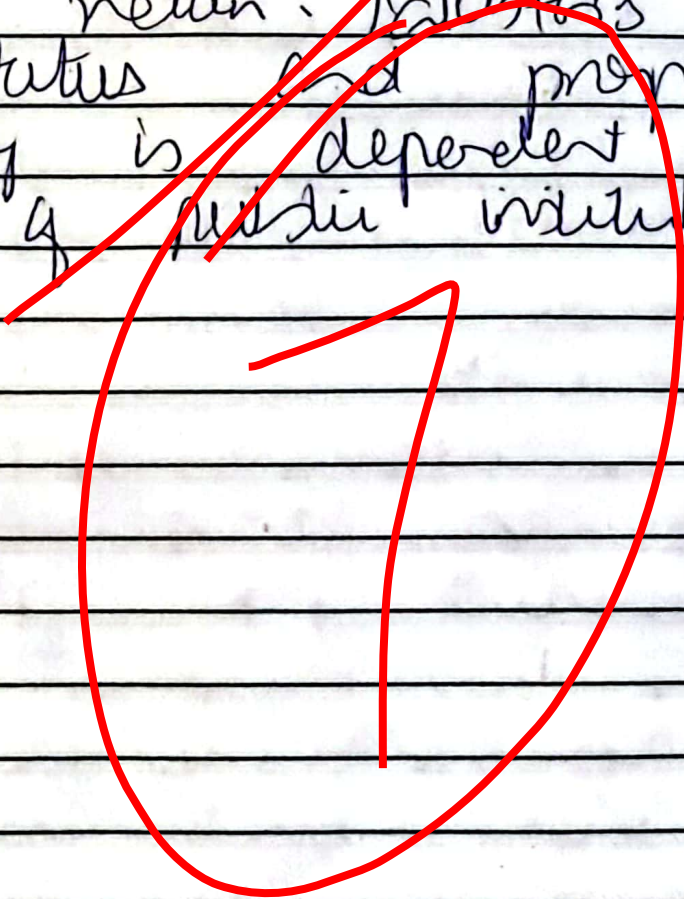 return.
status and prop
y is dependent
of public institu
1